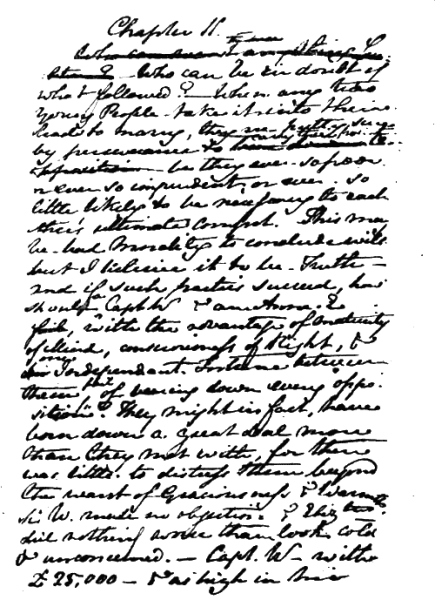 Chapter 11.
Who can be in doubt of
what followed? When any two
Young People take it into their
heads to marry, they are pretty sure
by perseverance to carry their point
be they ever so poor
or ever so imprudent, or ever so
little likely to be necessary to each
other's ultimate comfort. This may
be bad Morality to conclude with
but I believe it to be Truth—
and if such parties succeed, how
should a Capt. W— & an Anne E—
fail, with the advantage of Maturity
of Mind, consciousness of Right, &
one Independant Fortune between
them of bearing down every oppo-
sition? They might in fact, have
born down a great deal more
than they met with, for there
was little to distress them beyond
the want of Graciousness & Warmth
Sir W. made no objection. & Eliz:th
did nothing worse than look cold
& unconcerned.— Capt. W— with
£25,000— & as high in his